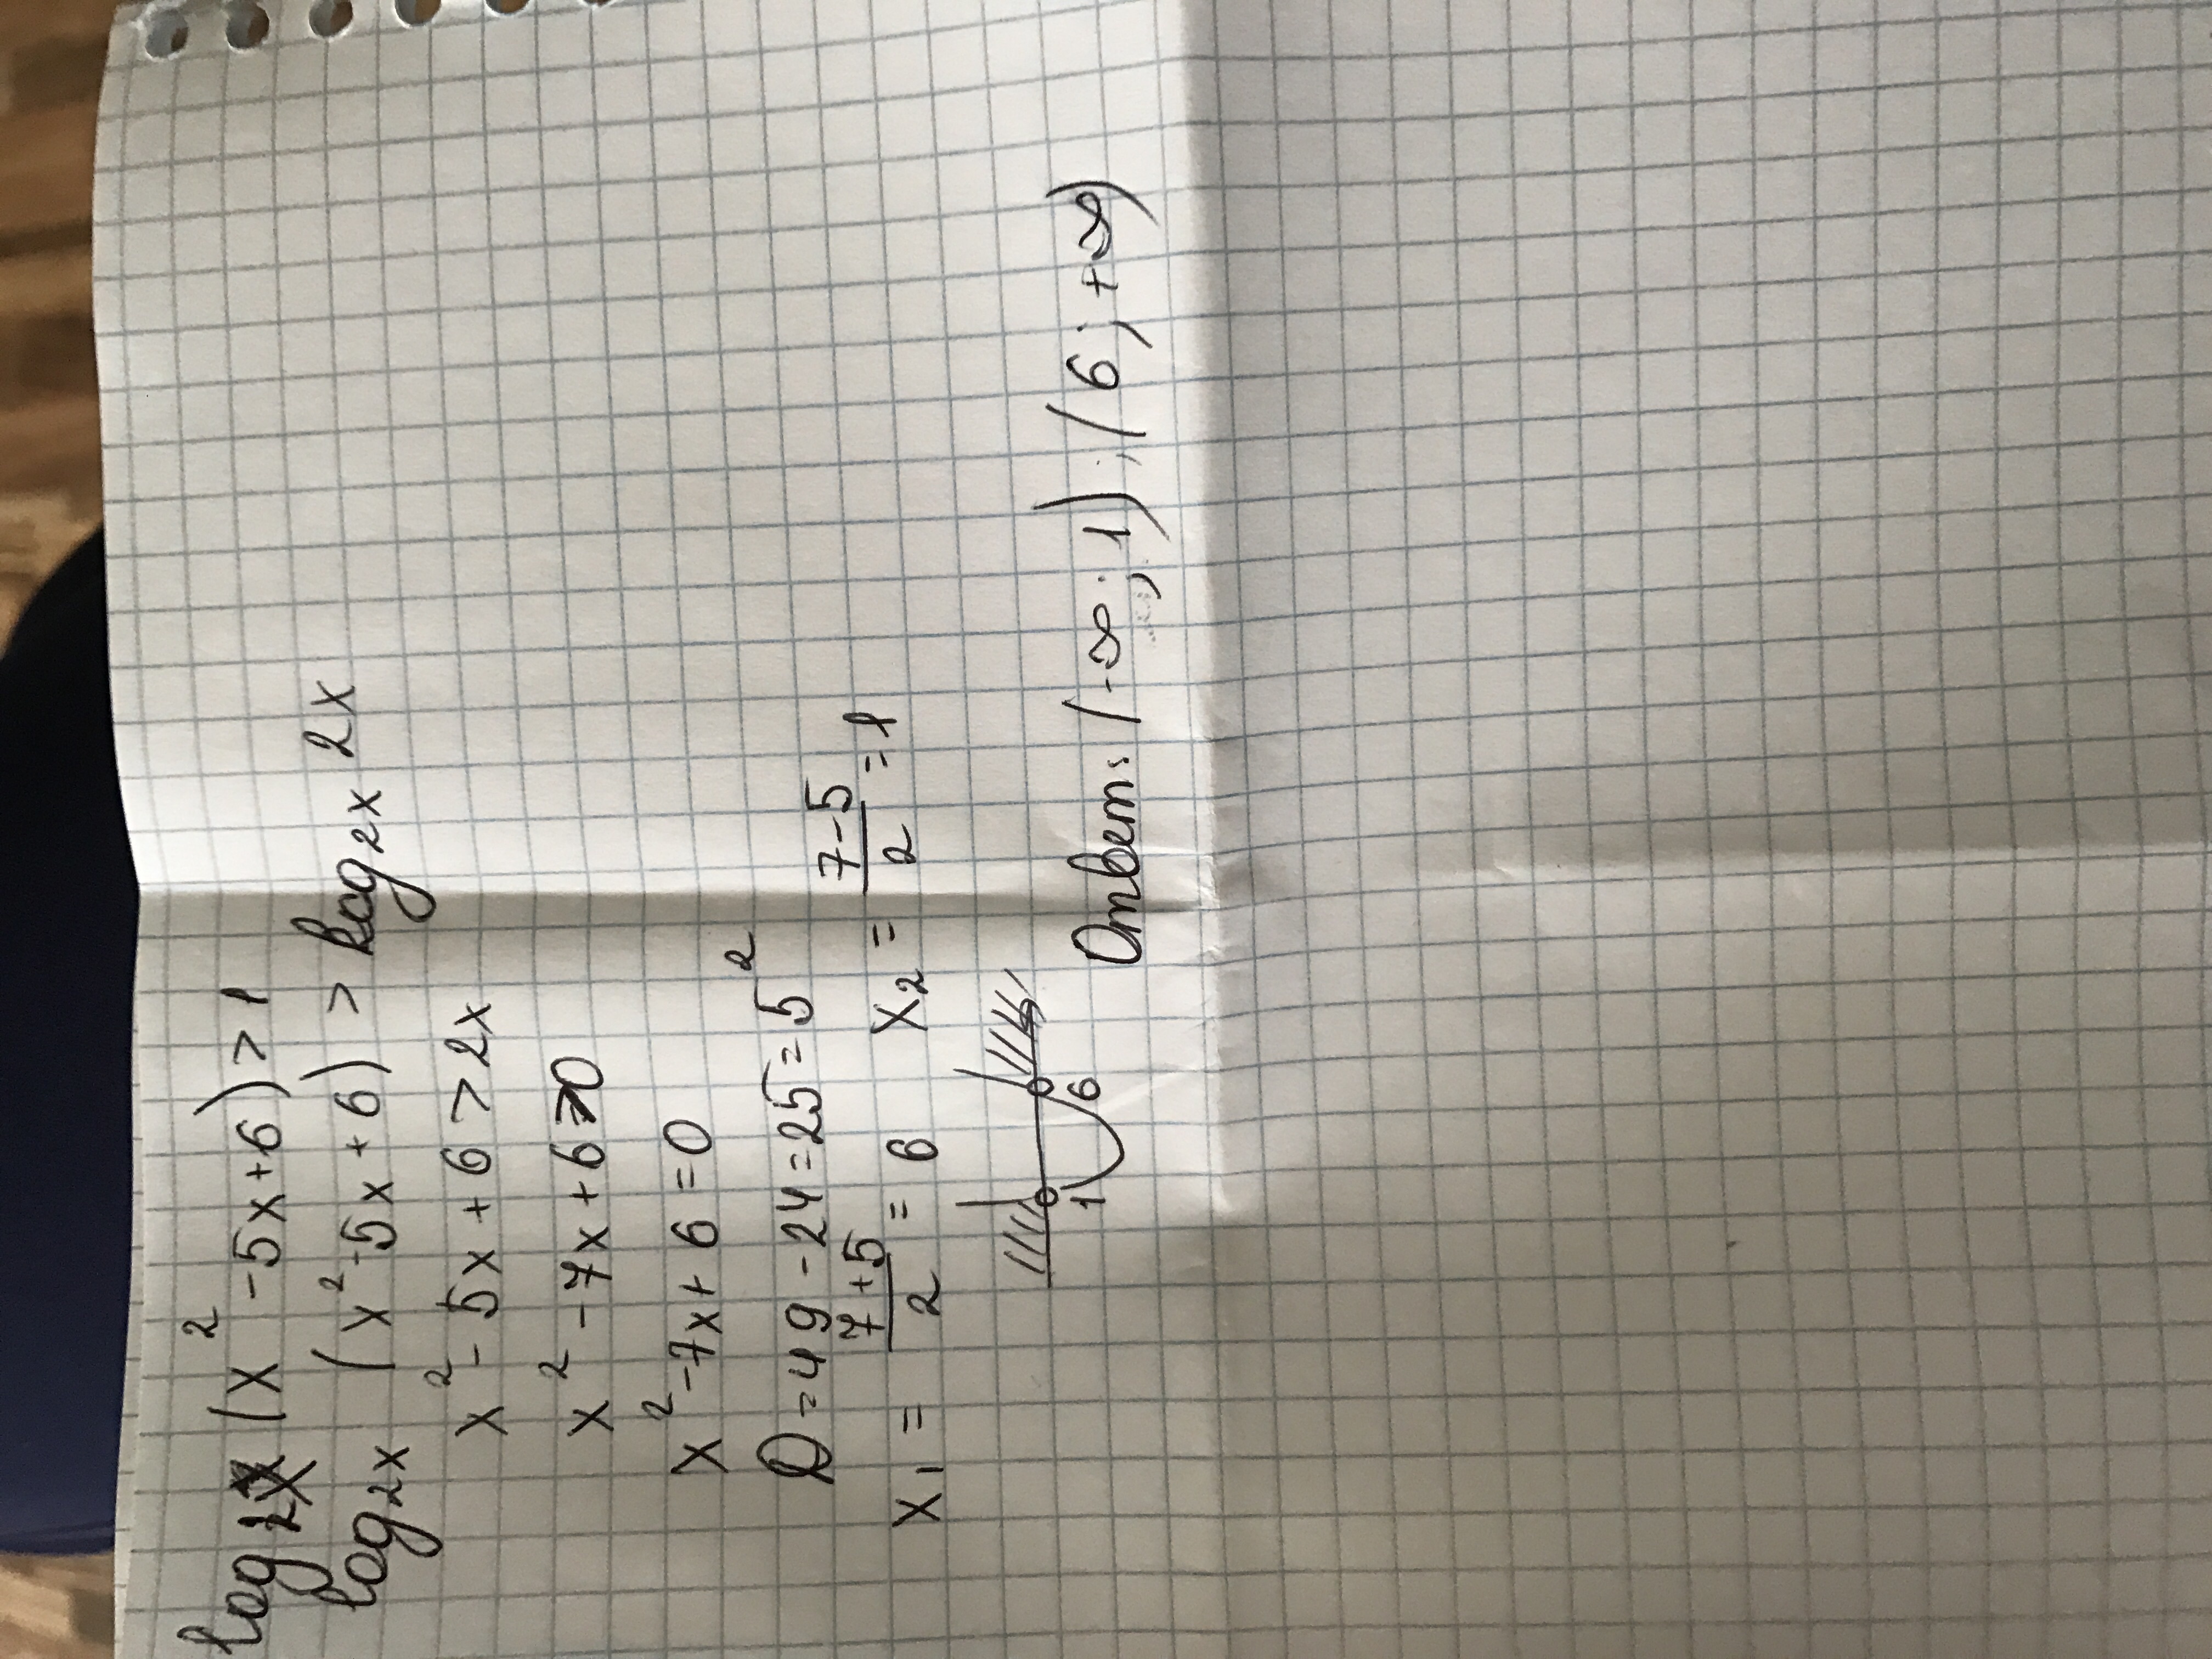 log₂ₓ (x² -5x+6)>1
log₂ₓ (x²-5x+6) > log₂ₓ 2x
x²-5x+6>2x
x²-7x+6>0
x²-7x+6=0
D=49-24=25=5²
x₁ = (7+5)/2 = 6 x₂ = (7-5)/2 = 1
1 6
Ответ: (-∞; 1); (6; +∞)